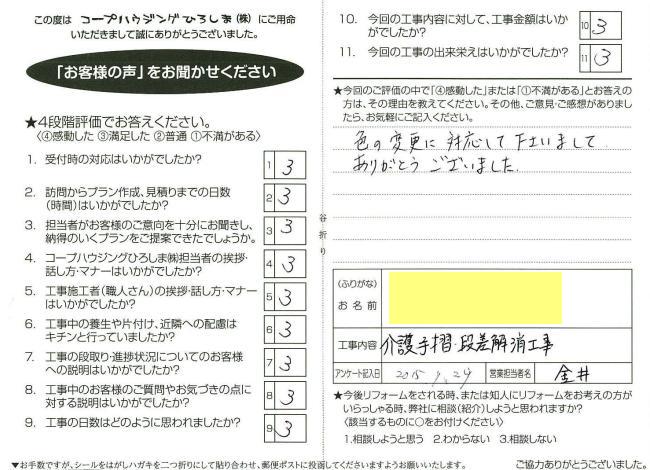 この度は コープハウジングひろしま(株) にご用命
いただきまして誠にありがとうございました。
「お客様の声」をお聞かせください
★4段階評価でお答えください。
〈④感動した ③満足した ②普通 ①不満がある〉
1. 受付時の対応はいかがでしたか?
1 3
2. 訪問からプラン作成、見積りまでの日数
(時間)はいかがでしたか?
2 3
3. 担当者がお客様のご意向を十分にお聞きし、
納得のいくプランをご提案できたでしょうか。
3 3
4. コープハウジングひろしま㈱担当者の挨拶・
話し方・マナーはいかがでしたか?
4 3
5. 工事施工者(職人さん)の挨拶・話し方・マナー
はいかがでしたか?
5 3
6. 工事中の養生や片付け、近隣への配慮は
キチンと行っていましたか?
6 3
7. 工事の段取り・進捗状況についてのお客様
への説明はいかがでしたか?
7 3
8. 工事中のお客様のご質問やお気づきの点に
対する説明はいかがでしたか?
8 3
9. 工事の日数はどのように思われましたか?
9 3
▼お手数ですが、シールをはがしハガキを二つ折りにして貼り合わせ、郵便ポストに投函してくださいますようお願いいたします。
谷折り
10. 今回の工事内容に対して、工事金額はいか
がでしたか?
10 3
11. 今回の工事の出来栄えはいかがでしたか?
11 3
★今回のご評価の中で「④感動した」または「①不満がある」とお答え
の方は、その理由を教えてください。その他、ご意見・ご感想がありまし
たら、お気軽にご記入ください。
色の変更に対応して下さいまして
ありがとうございました。
(ふりがな)
お名前
工事内容 介護手摺・段差解消工事
アンケート記入日 2015 9.29 営業担当者名 金井
★今後リフォームをされる時、または知人にリフォームをお考えの方が
いらっしゃる時、弊社に相談(紹介)しようと思われますか?
〈該当するものに○をお付けください〉
1.相談しようと思う 2.わからない 3.相談しない
ご協力ありがとうございました。